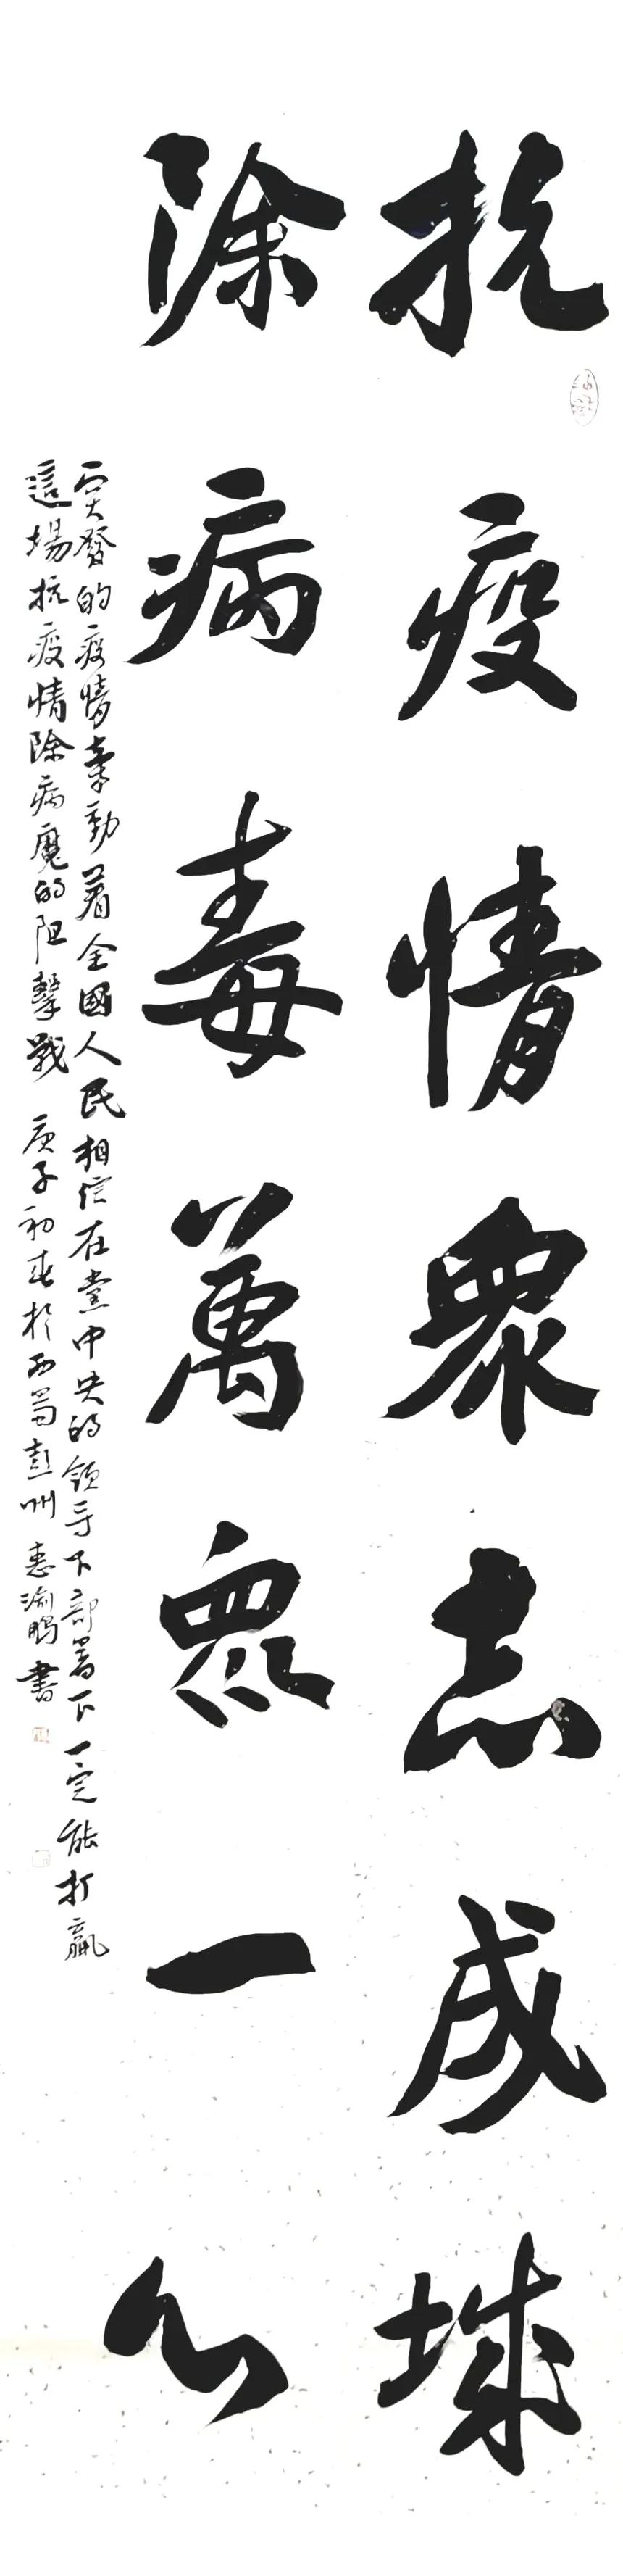 抗疫情衆志成城
除病毒萬眾一心
突發的疫情牽動着全國人民相信在黨中央的領导下部署下一定能打贏
這場抗疫情除病魔的阻擊戰 庚子初春於西蜀彭州 惠渝鵬書